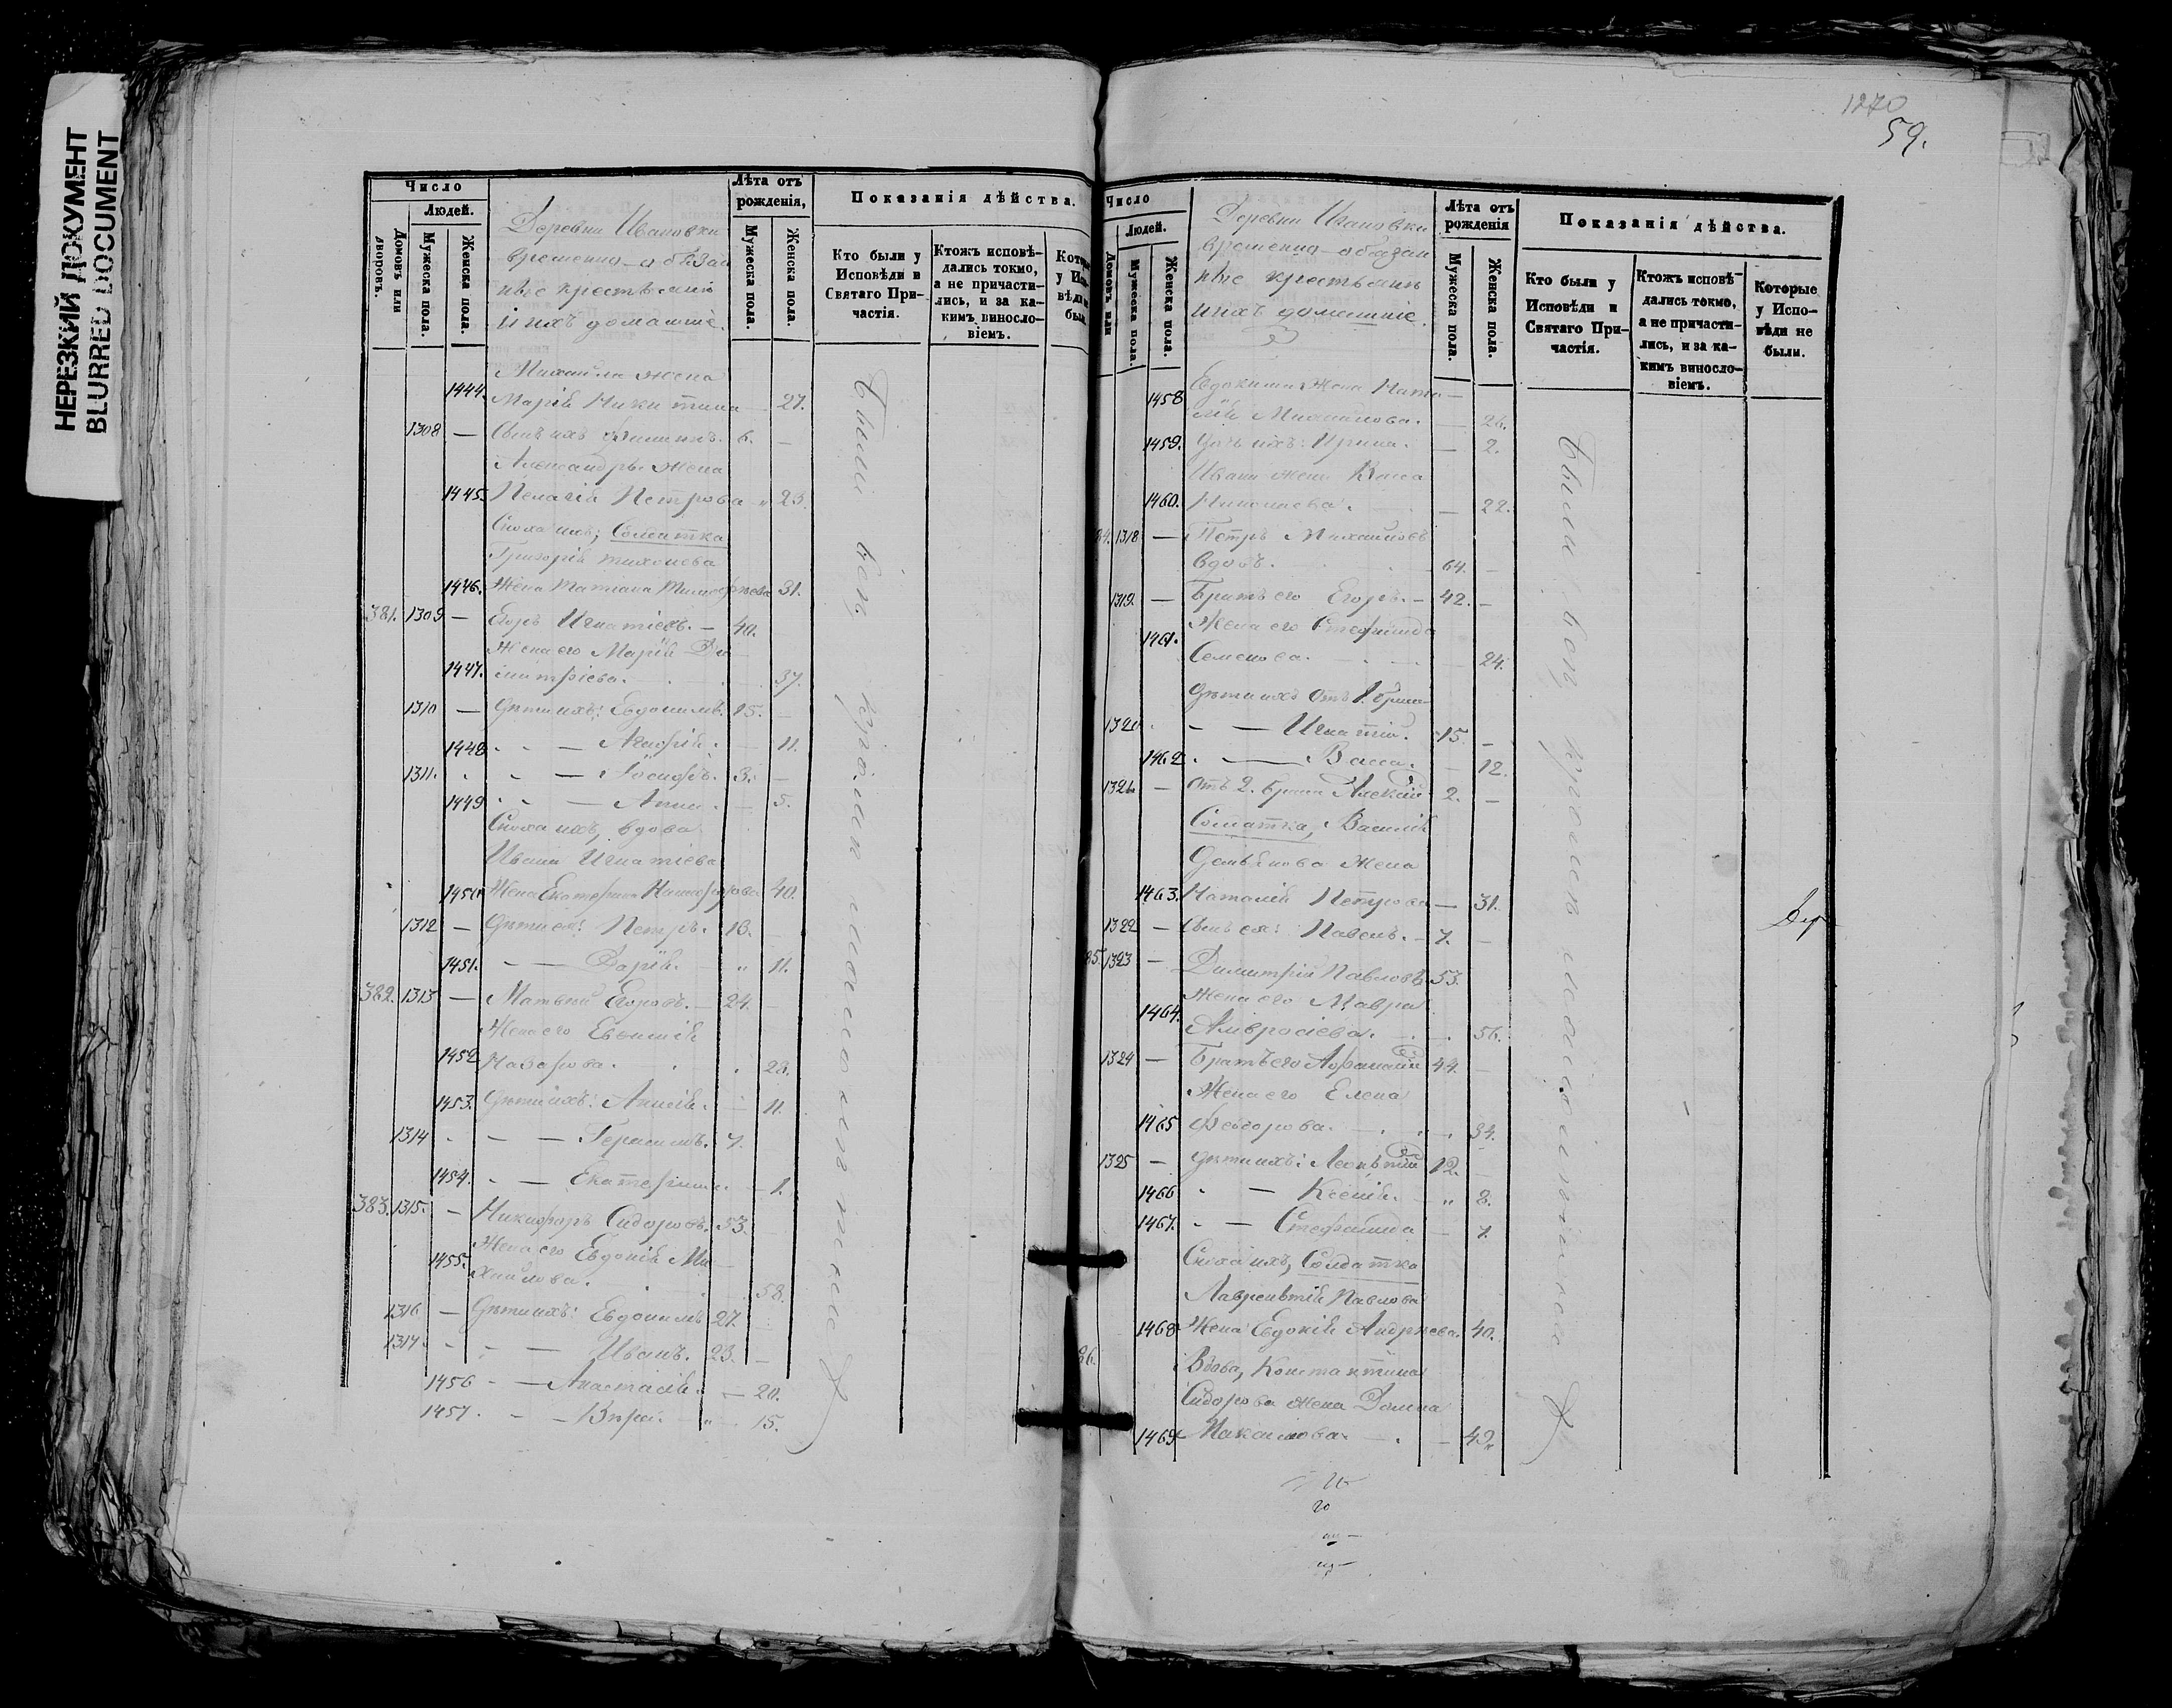 НЕРЕЗКИЙ ДОКУМЕНТ
BLURRED DOCUMENT
Число
Людей.
Домовъ или дворовъ.
Мужеска пола.
Женска пола.
Деревни Ивановки
временно-обязан
ные крестьяне
и ихъ домашніе.
Лѣта отъ рожденія,
Мужеска пола.
Женска пола.
Показанія дѣйства.
Кто были у Исповѣди и Святаго При-частія.
Ктожъ исповѣ-дались токмо, а не причасти-лись, и за ка-кимъ винослo-віемъ.
Михаила жена
1444. Марія Никитина 27.
1308 — Сынъ ихъ Филиппъ. 6. —
Александра жена
1445. Пелагія Петрова " 23.
Сноха ихъ, Солдатка
Григорія Тихонова
1446. Жена Татіана Тимофѣева 31.
381. 1309 — Егоръ Игнатіевъ. — 40.
Жена его Марія Ди
1447. митріева. 37.
1310 — Дѣти ихъ: Евдокимъ. 15. —
1448 — Агафія. — 11.
1311. — Іосифъ. 3. —
1449 — Анна. — 5.
Сноха ихъ, вдова
Ивана Игнатіева
1450. Жена Екатерина Никифорова 40.
1312 — Дѣти ея: Петръ. 16. —
1451. — Дарія. " 11.
382. 1313 — Матвей Егоровъ. — 24. —
Жена его Евфимія
1452 Назарова. 28.
1453. Дѣти ихъ: Анисія. — 11.
1314 — Герасимъ. 7.
1454. — Екатерина. — 1.
383. 1315. — Никифоръ Сидоровъ. 53.
Жена его Евдокія Ми
1455. хайлова. 58.
1316 — Дѣти ихъ: Евдокимъ 27.
1317 — Иванъ. 23. —
1456 — Анастасія. — 20.
1457. — Вѣра. " — 15.
были всѣ
1270
59.
Число
Людей.
Домовъ или
Мужеска пола.
Женска пола.
Деревни Ивановки
временно-обязан
ные крестьяне
и ихъ домашніе.
Лѣта отъ рожденія
Мужеска пола.
Женска пола.
Показанія дѣйства.
Кто были у Исповѣди и Святаго При-частія.
Ктожъ исповѣ-дались токмо, а не причасти-лись, и за ка-кимъ винослo-віемъ.
Которые у Испо-вѣди не были.
Евдокима жена Ната
1458 лія Михайлова. — 26.
1459. Дочь ихъ: Ирина. — 2.
Ивана жена Васса
1460. Николаева. — 22.
84. 1318 — Петръ Михайловъ
вдовъ. 64. —
1319. — Братъ его Егоръ. — 42. —
Жена его Стефанида
1461. Семенова. 24.
Дѣти ихъ отъ 1. брака
1320 — Игнатій. 15. —
1462 — Васса. — 12.
1321. — отъ 2. брака Алексій 2. —
Солдатка, Василія
Демьянова жена
1463. Наталія Петрова — 31.
1322 — Сынъ ея: Павелъ. — 7. —
85. 1323 — Димитрій Павловъ 53.
Жена его Мавра
1464. Амвросіева. 56.
1324 — Братъ его Афанасій 44. —
Жена его Елена
1465 Феодорова. 34.
1325 — Дѣти ихъ: Леонтій 12. —
1466 — Ксенія. " 8.
1467. — Стефанида — 7.
Сноха ихъ, Солдатка
Лаврентія Павлова
1468 Жена Евдокія Андреева. 40.
86. Вдова, Константина
Сидорова жена Домна
1469 Максимова. — 42.
были всѣ